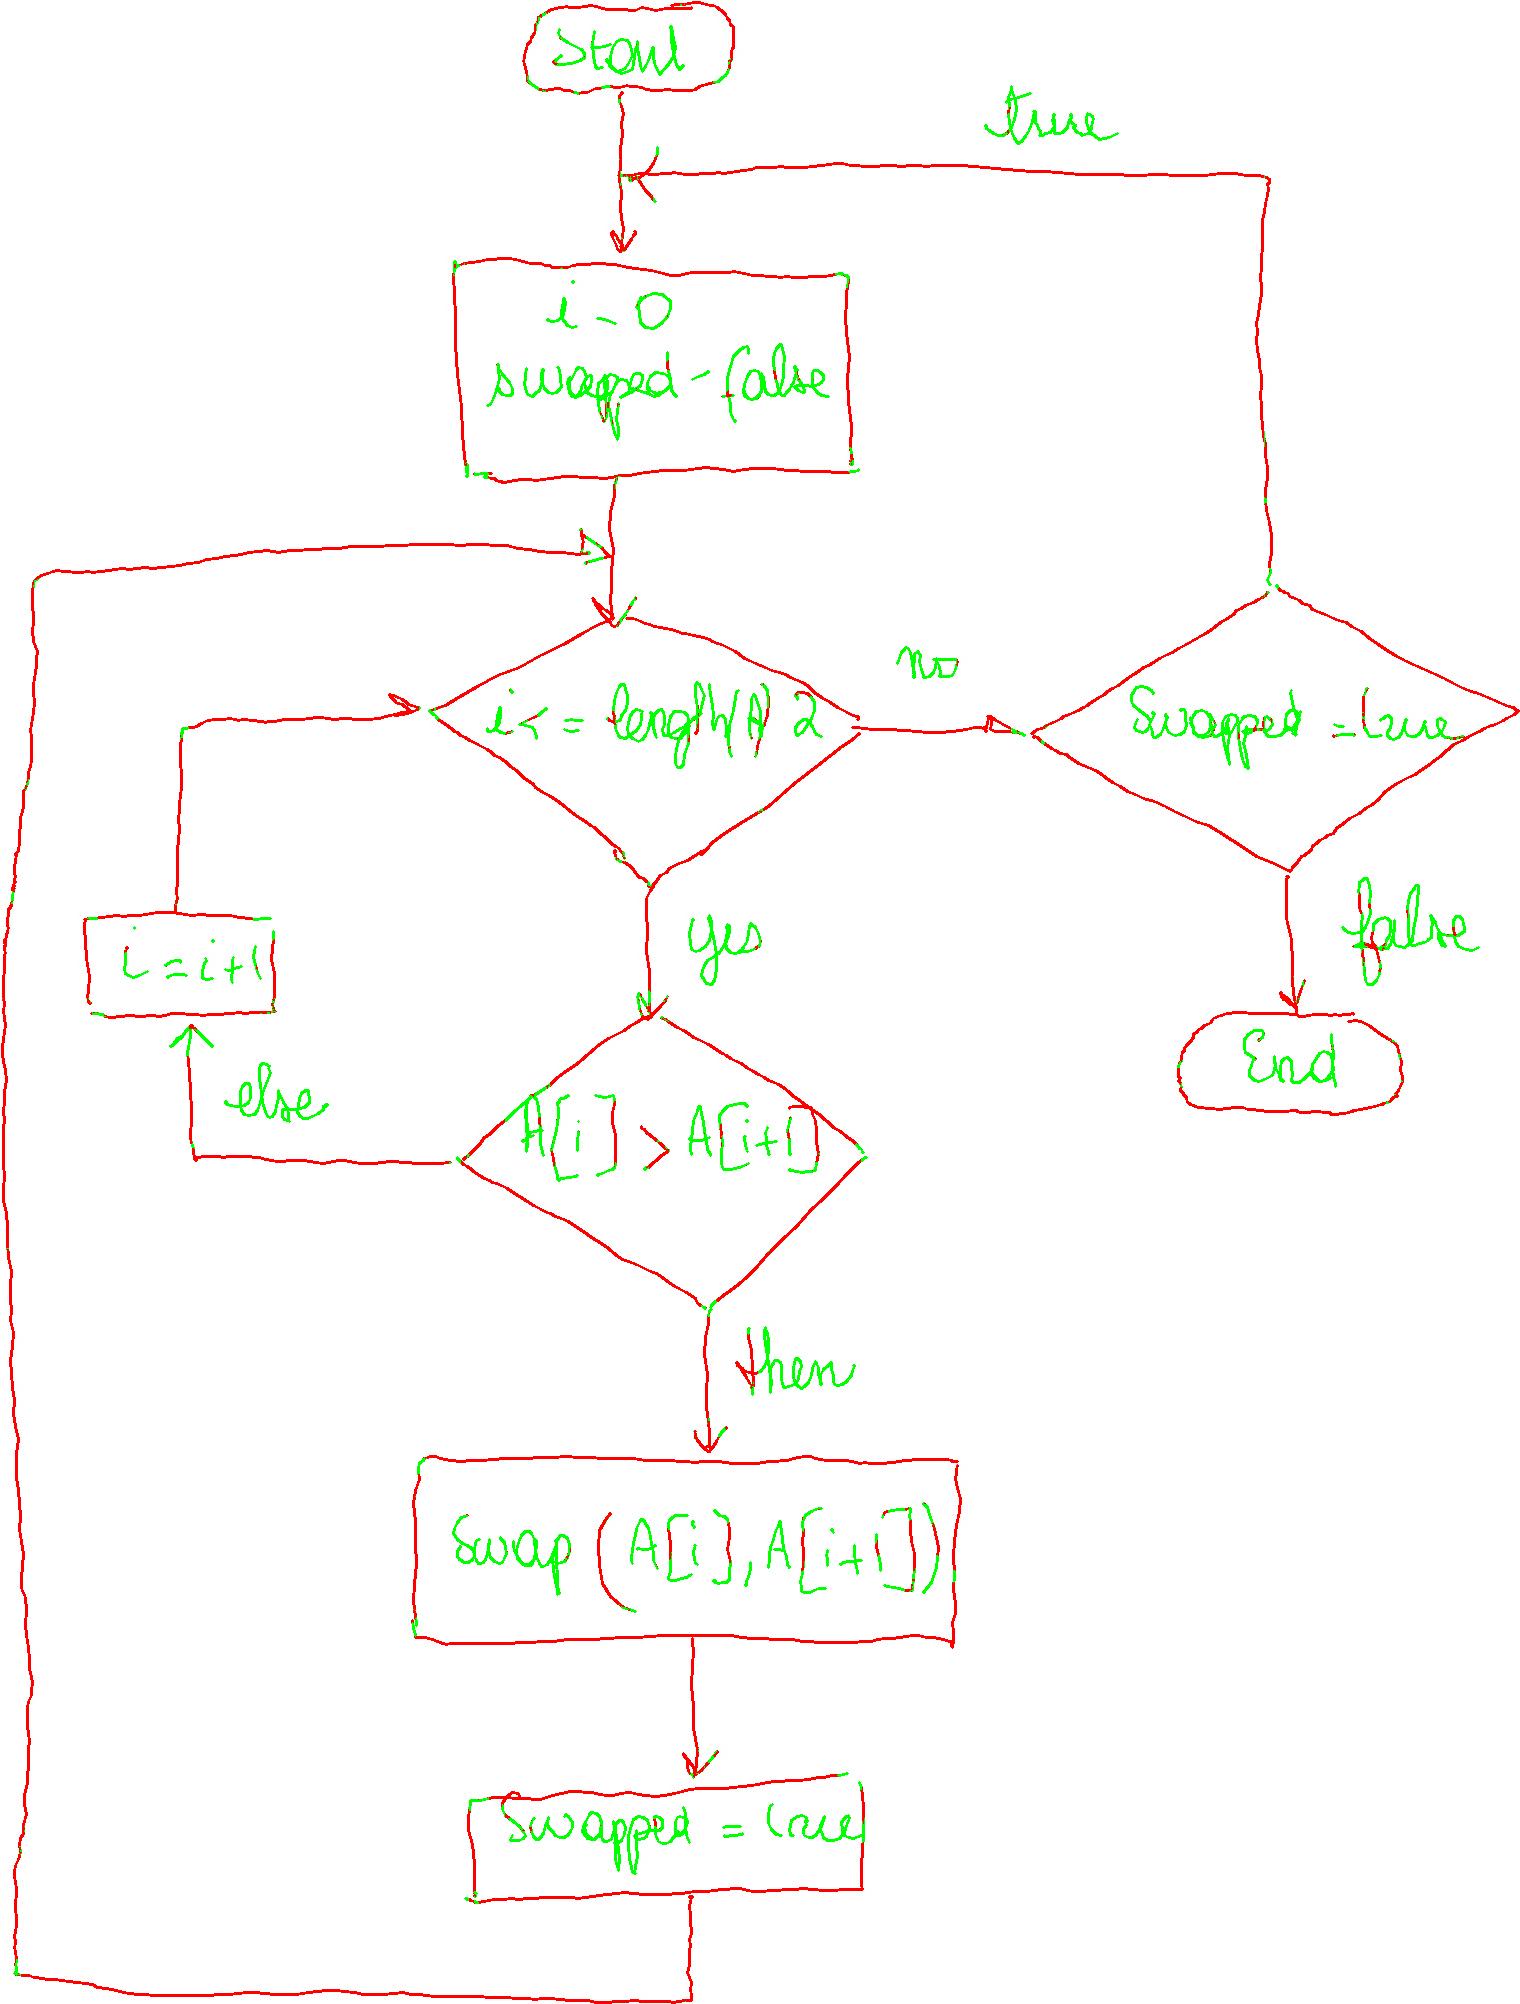 Start
true
i - 0
swapped - false
i <= length(A) 2
no
Swapped = true
yes
false
i = i+1
End
else
A[i] > A[i+1]
then
Swap (A[i], A[i+1])
Swapped = true